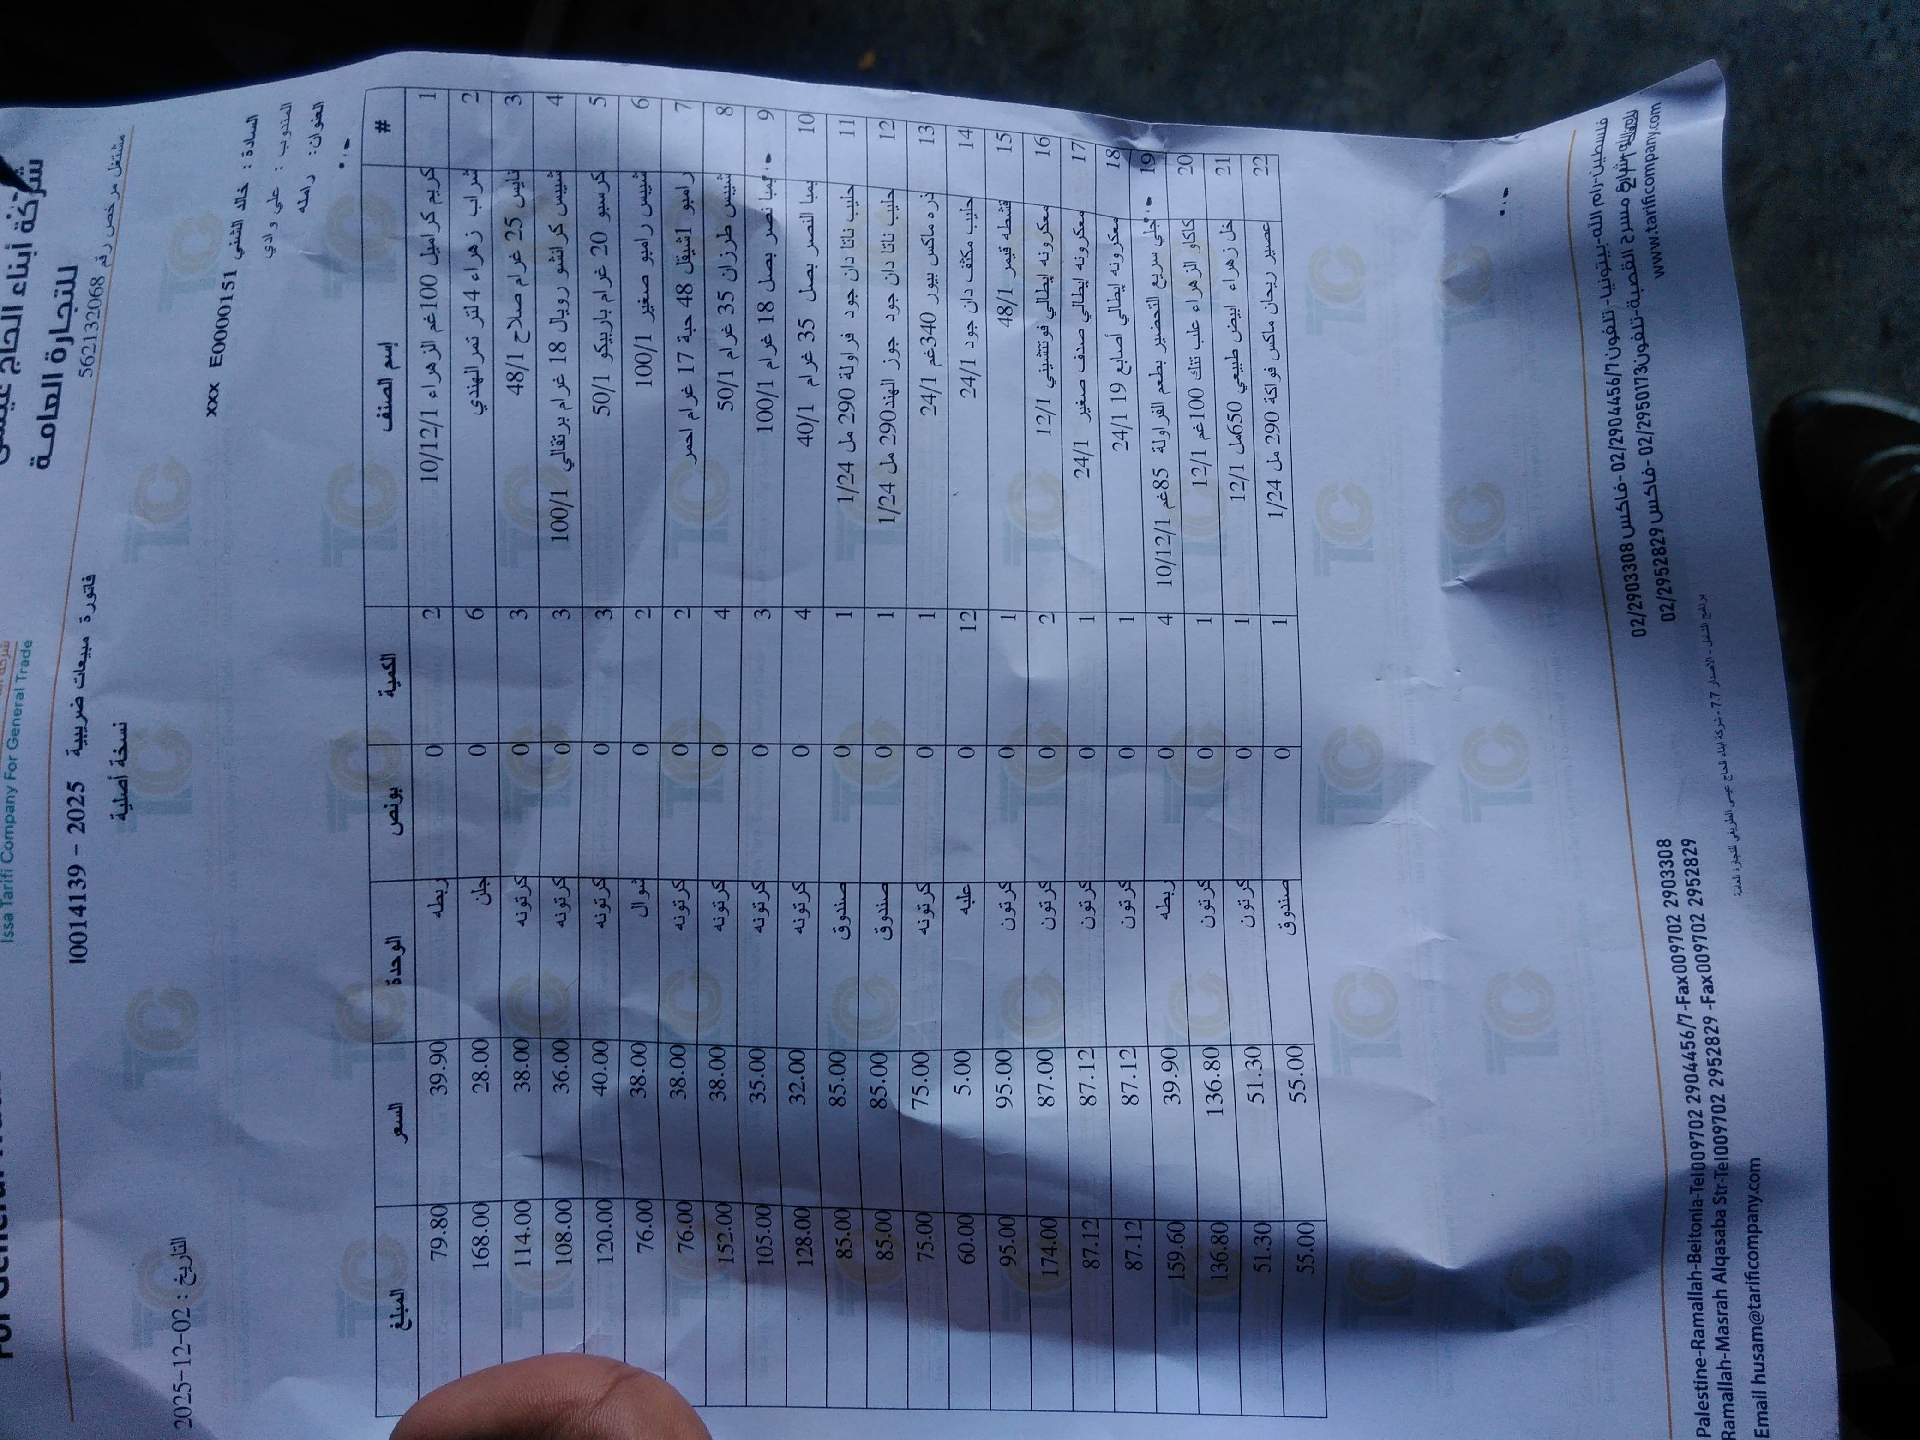 شركة أبناء الحاج
للتجارة العامة
Issa Tarifi Company For General Trade
مشتغل مرخص رقم 562132068
فاتورة مبيعات ضريبية 2025 - I0014139
نسخة أصلية
التاريخ : 2025-12-02
السادة : خالد الشني xxx E0000151
المندوب : علي وادي
العنوان: رامله
# إسم الصنف الكمية بونص الوحدة السعر المبلغ
1 كريم كراميل 100غم الزهراء 10/12/1 2 0 ربطه 39.90 79.80
2 شراب زهراء 4 لتر تمر الهندي 6 0 جلن 28.00 168.00
3 نايس 25 غرام صلاح 48/1 3 0 كرتونه 38.00 114.00
4 شيبس كرانشو رويال 18 غرام برتقالي 100/1 3 0 كرتونه 36.00 108.00
5 كرسبو 20 غرام باربيكو 50/1 3 0 كرتونه 40.00 120.00
6 شيبس رامبو صغير 100/1 2 0 شوال 38.00 76.00
7 رامبو 1شيقل 48 حبة 17 غرام احمر 2 0 كرتونه 38.00 76.00
8 شيبس طرزان 35 غرام 50/1 4 0 كرتونه 38.00 152.00
9 بمبا نصر بصل 18 غرام 100/1 3 0 كرتونه 35.00 105.00
10 بمبا النصر بصل 35 غرام 40/1 4 0 كرتونه 32.00 128.00
11 حليب ناتا دان جود فراولة 290 مل 1/24 1 0 صندوق 85.00 85.00
12 حليب ناتا دان جود جوز الهند290 مل 1/24 1 0 صندوق 85.00 85.00
13 ذره ماكس بيور 340غم 24/1 1 0 كرتونه 75.00 75.00
14 حليب مكثف دان جود 24/1 12 0 علبه 5.00 60.00
15 قشطه قيمر 48/1 1 0 كرتون 95.00 95.00
16 معكرونه ايطالي فوتتشيني 12/1 2 0 كرتون 87.00 174.00
17 معكرونه ايطالي صدف صغير 24/1 1 0 كرتون 87.12 87.12
18 معكرونه ايطالي أصابع 19 24/1 1 0 كرتون 87.12 87.12
19 جلي سريع التحضير بطعم الفراولة 85غم 10/12/1 4 0 ربطه 39.90 159.60
20 كاكاو الزهراء علب تنك 100غم 12/1 1 0 كرتون 136.80 136.80
21 خل زهراء ابيض طبيعي 650مل 12/1 1 0 كرتون 51.30 51.30
22 عصير ريحان ماكس فواكة 290 مل 1/24 1 0 صندوق 55.00 55.00
فلسطين-رام الله-بيتونيا-تلفون 02/2904456/7-فاكس 02/2903308
رام الله-شارع مسرح القصبة-تلفون 02/2950173-فاكس 02/2952829
www.tarificompany.com
برنامج الشامل - الاصدار 7.7 - شركة ابناء الحاج عيسى الطريفي للتجارة العامة
Palestine-Ramallah-Beitonia-Tel009702 2904456/7-Fax009702 2903308
Ramallah-Masrah Alqasaba Str-Tel009702 2952829 -Fax009702 2952829
Email husam@tarificompany.com